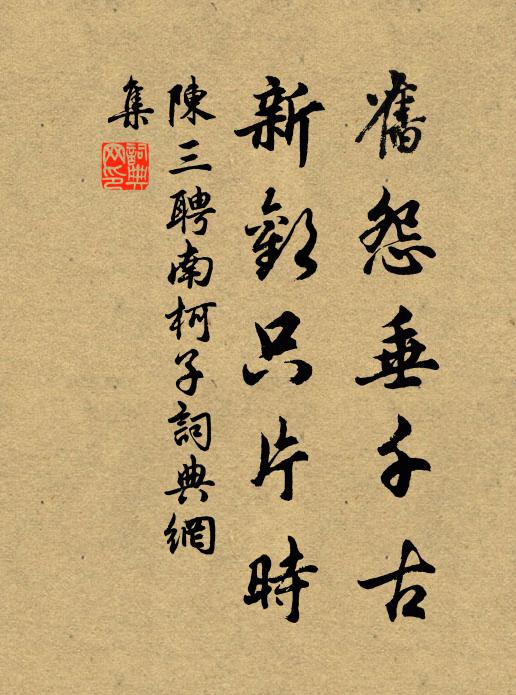 舊怨垂千古
新歡只片時
陳三聘南柯子詞典網
集
詞典網印